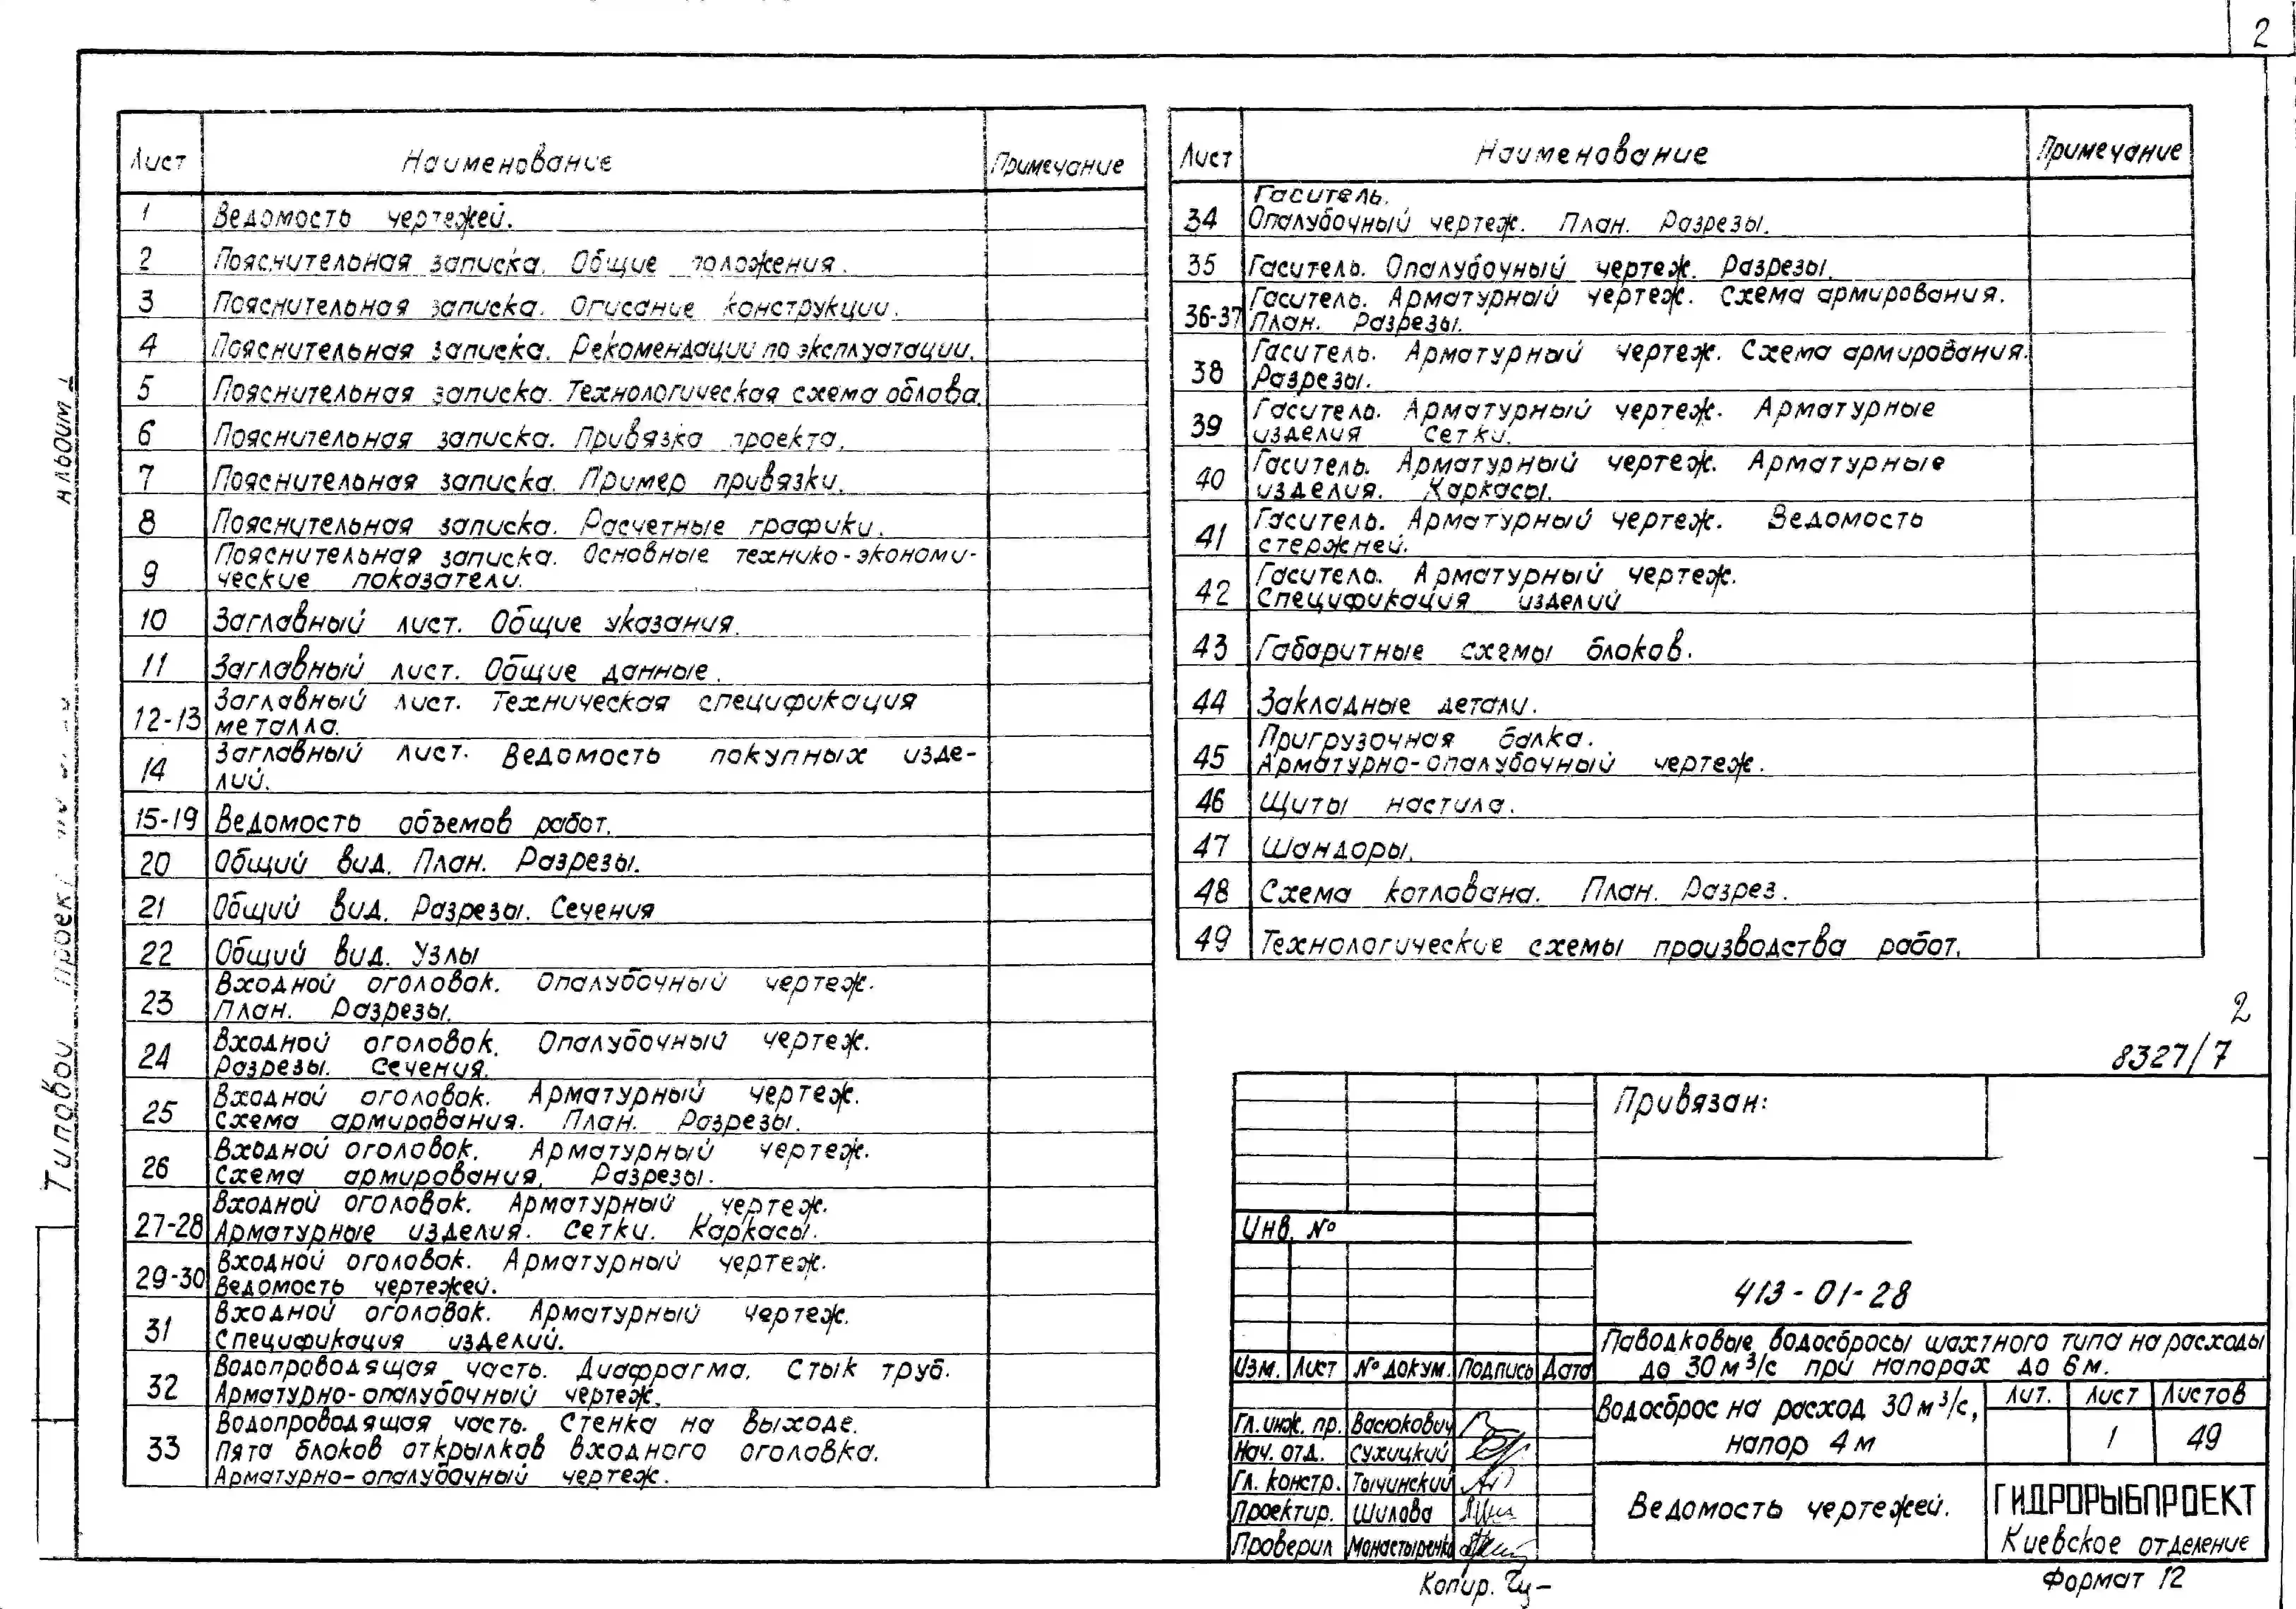 2
Лист Наименование Примечание
1 Ведомость чертежей.
2 Пояснительная записка. Общие положения.
3 Пояснительная записка. Описание конструкции.
4 Пояснительная записка. Рекомендации по эксплуатации.
5 Пояснительная записка. Технологическая схема облова.
6 Пояснительная записка. Привязка проекта.
7 Пояснительная записка. Пример привязки.
8 Пояснительная записка. Расчетные графики.
9 Пояснительная записка. Основные технико-экономи-
ческие показатели.
10 Заглавный лист. Общие указания.
11 Заглавный лист. Общие данные.
12-13 Заглавный лист. Техническая спецификация
металла.
14 Заглавный лист. Ведомость покупных изде-
лий.
15-19 Ведомость объемов работ.
20 Общий вид. План. Разрезы.
21 Общий вид. Разрезы. Сечения
22 Общий вид. Узлы
23 Входной оголовок. Опалубочный чертеж.
План. Разрезы.
24 Входной оголовок. Опалубочный чертеж.
Разрезы. Сечения.
25 Входной оголовок. Арматурный чертеж.
Схема армирования. План. Разрезы.
26 Входной оголовок. Арматурный чертеж.
Схема армирования. Разрезы.
27-28 Входной оголовок. Арматурный чертеж.
Арматурные изделия. Сетки. Каркасы.
29-30 Входной оголовок. Арматурный чертеж.
Ведомость чертежей.
31 Входной оголовок. Арматурный чертеж.
Спецификация изделий.
32 Водопроводящая часть. Диафрагма. Стык труб.
Арматурно-опалубочный чертеж.
33 Водопроводящая часть. Стенка на выходе.
Пята блоков открылков входного оголовка.
Арматурно-опалубочный чертеж.
Лист Наименование Примечание
34 Гаситель.
Опалубочный чертеж. План. Разрезы.
35 Гаситель. Опалубочный чертеж. Разрезы.
36-37 Гаситель. Арматурный чертеж. Схема армирования.
План. Разрезы.
38 Гаситель. Арматурный чертеж. Схема армирования.
Разрезы.
39 Гаситель. Арматурный чертеж. Арматурные
изделия Сетки.
40 Гаситель. Арматурный чертеж. Арматурные
изделия. Каркасы.
41 Гаситель. Арматурный чертеж. Ведомость
стержней.
42 Гаситель. Арматурный чертеж.
Спецификация изделий
43 Габаритные схемы блоков.
44 Закладные детали.
45 Пригрузочная балка.
Арматурно-опалубочный чертеж.
46 Щиты настила.
47 Шандоры.
48 Схема котлована. План. Разрез.
49 Технологические схемы производства работ.
2
8327/7
Привязан:
Инв. №
413-01-28
Паводковые водосбросы шахтного типа на расходы
до 30 м³/с при напорах до 6 м.
Изм. Лист № докум. Подпись Дата
Водосброс на расход 30 м³/с,
напор 4 м
Лит. Лист Листов
1 49
Гл. инж. пр. Васюкович
Нач. отд. Сухицкий
Гл. констр. Тычинский
Проектир. Шилова
Проверил Монастыренко
Ведомость чертежей.
ГИДРОРЫБПРОЕКТ
Киевское отделение
Копир.
Формат 12
Типовой проект
Альбом